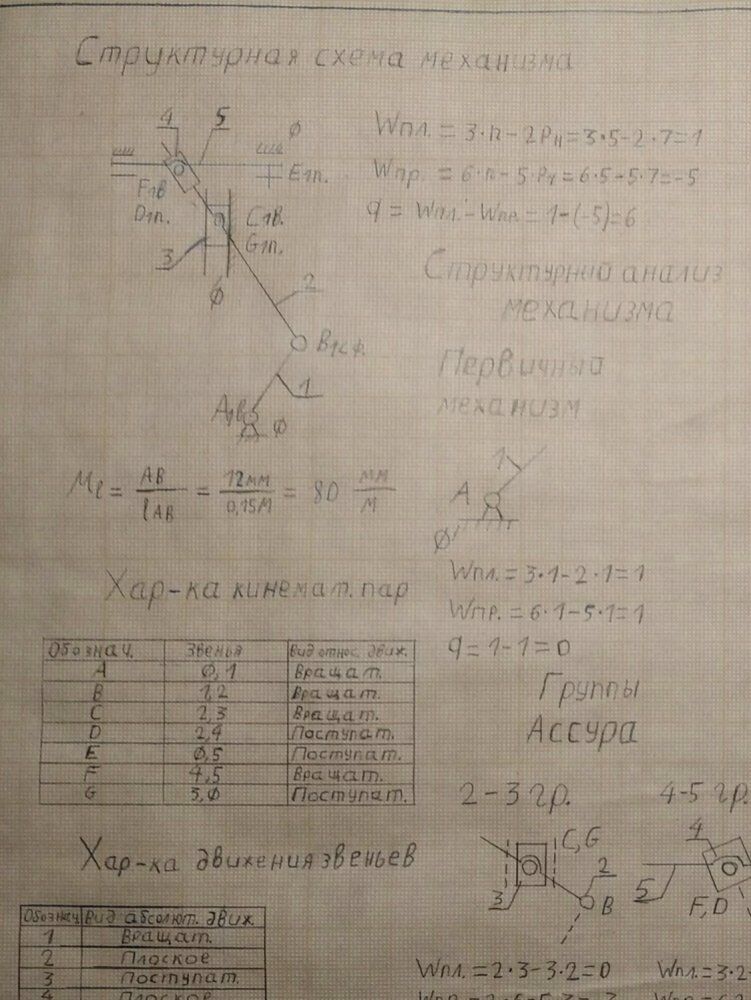 Структурная схема механизма
4 5 ∅
E1п.
F1в
D1п.
C1в.
G1п.
3
∅
2
B1сф.
1
A1в
∅
Wпл. = 3·n - 2Pн = 3·5 - 2·7 = 1
Wпр. = 6·n - 5·Pн = 6·5 - 5·7 = -5
q = Wпл. - Wпр. = 1 - (-5) = 6
Структурный анализ
механизма
Первичный
механизм
1
A
∅
Wпл. = 3·1 - 2·1 = 1
Wпр. = 6·1 - 5·1 = 1
q = 1 - 1 = 0
Mℓ = AB / ℓAB = 12мм / 0,15м = 80 мм / м
Хар-ка кинемат. пар
Обознач. Звенья Вид относ. движ.
A ∅,1 Вращат.
B 1,2 Вращат.
C 2,3 Вращат.
D 2,4 Поступат.
E ∅,5 Поступат.
F 4,5 Вращат.
G 3,∅ Поступат.
Группы
Ассура
2-3 гр. 4-5 гр.
C,G
2
3
B
4
5
F,D
Wпл. = 2·3 - 3·2 = 0
Wпл. = 3·2
Хар-ка движения звеньев
Обознач. Вид абсолют. движ.
1 Вращат.
2 Плоское
3 Поступат.
4 Плоское